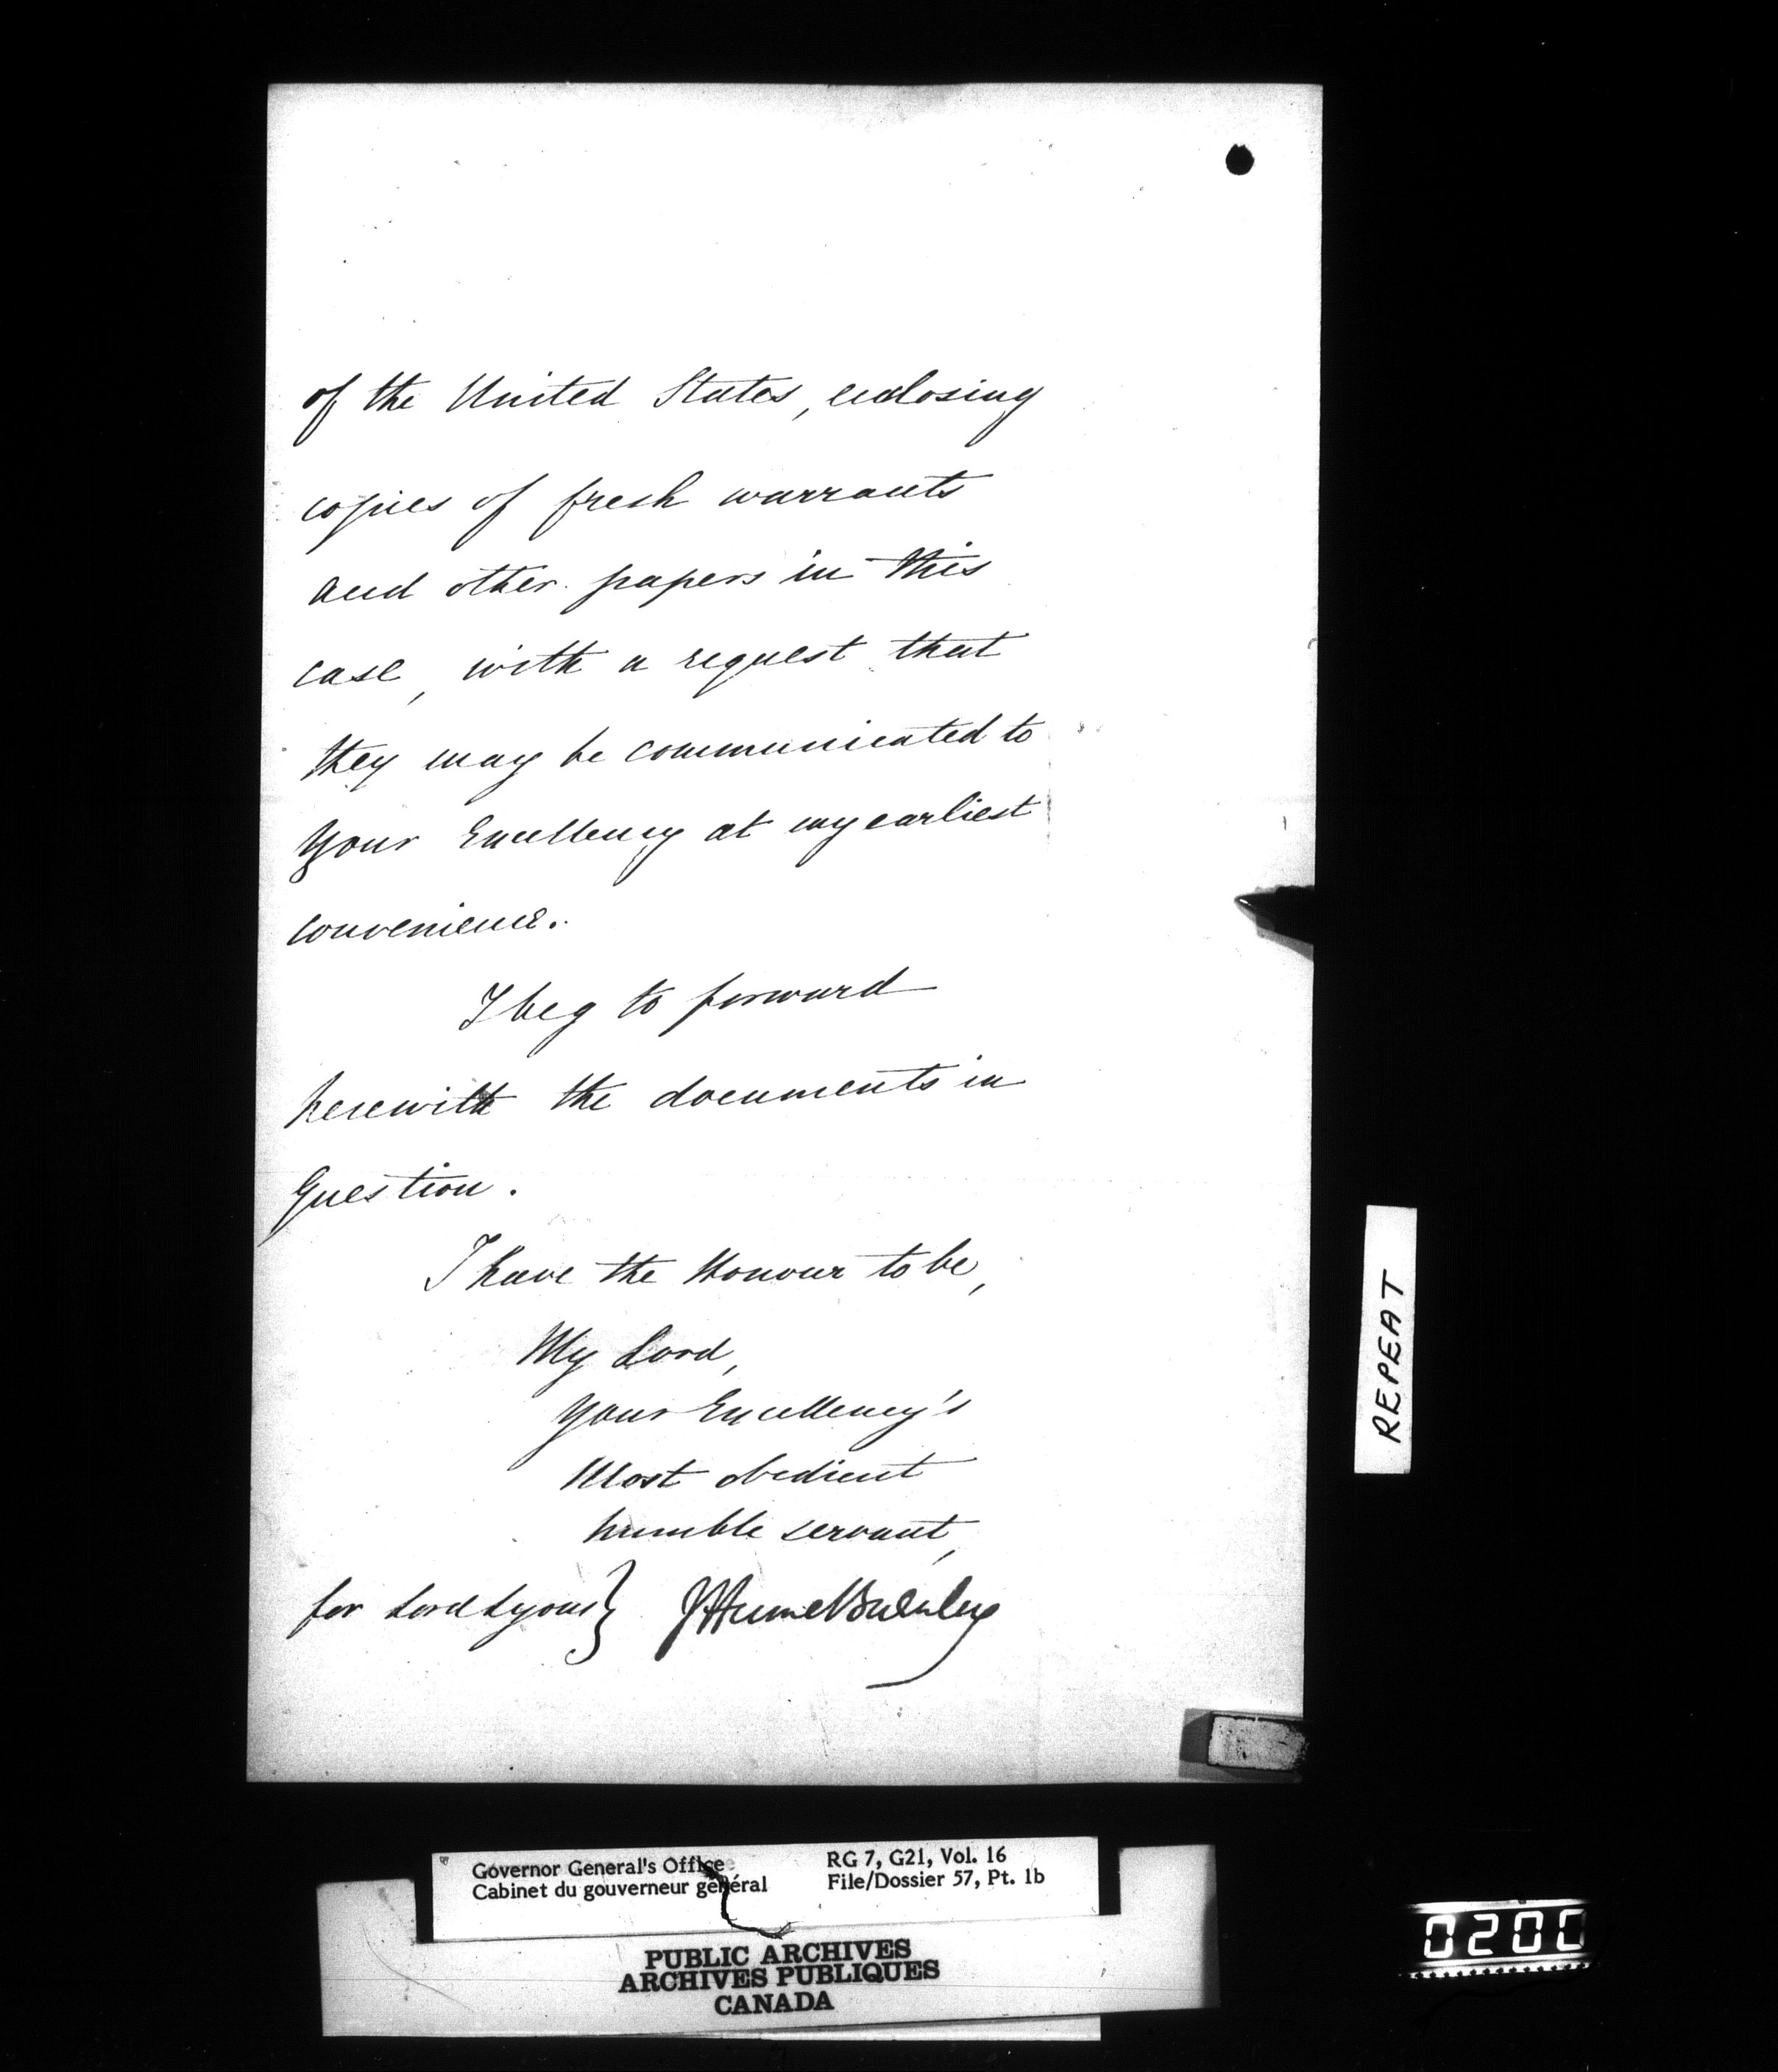 of the United States, enclosing
copies of fresh warrants
and other papers in this
case, with a request that
they may be communicated to
Your Excellency at my earliest
convenience.
I beg to forward
herewith the documents in
Question.
I have the Honour to be,
My Lord,
Your Excellency's
Most obedient
humble servant,
for Lord Lyons} J Hume Burnley
REPEAT
Governor General's Office
Cabinet du gouverneur général
RG 7, G21, Vol. 16
File/Dossier 57, Pt. 1b
PUBLIC ARCHIVES
ARCHIVES PUBLIQUES
CANADA
0200